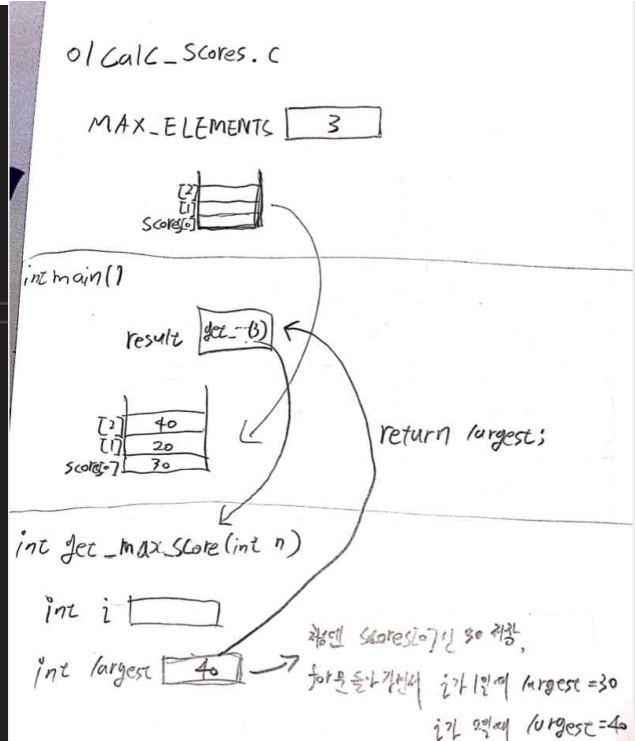 01 Calc_Scores.c
MAX_ELEMENTS 3
[2]
[1]
Scores[0]
int main()
result get_…(3)
[2] 40
[1] 20
scores[0] 30
return largest;
int get_max_score(int n)
int i
int largest 40
처음엔 scores[0]인 30 저장,
for문 돌아가면서 i가 1일때 largest=30
i가 2일때 largest=40